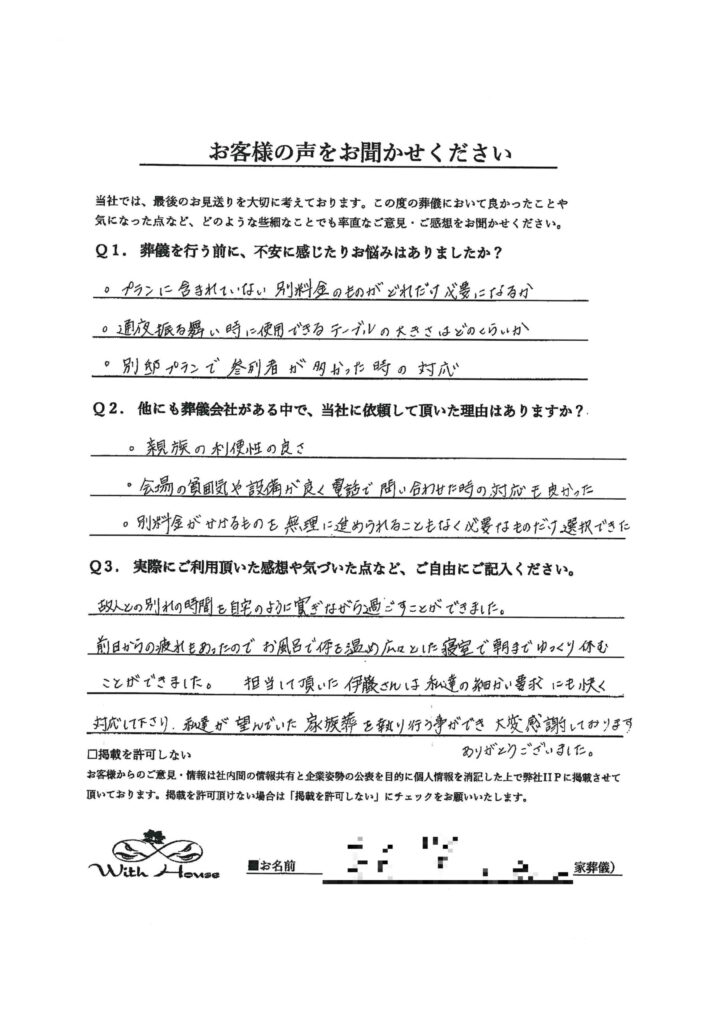 お客様の声をお聞かせください
当社では、最後のお見送りを大切に考えております。この度の葬儀において良かったことや
気になった点など、どのような些細なことでも率直なご意見・ご感想をお聞かせください。
Q1. 葬儀を行う前に、不安に感じたりお悩みはありましたか？
。プランに含まれていない別料金のものがどれだけ必要になるか
。通夜振る舞い時に使用できるテーブルの大きさはどのくらいか
。別邸プランで参列者が多かった時の対応
Q2. 他にも葬儀会社がある中で、当社に依頼して頂いた理由はありますか？
。親族の利便性の良さ
。会場の雰囲気や設備が良く電話で問い合わせた時の対応も良かった
。別料金がかかるものを無理に進められることもなく必要なものだけ選択できた
Q3. 実際にご利用頂いた感想や気づいた点など、ご自由にご記入ください。
故人との別れの時間を自宅のように寛ぎながら過ごすことができました。
前日からの疲れもあったのでお風呂で体を温め広々とした寝室で朝までゆっくり休む
ことができました。 担当して頂いた伊藤さんは私達の細かい要求にも快く
対応して下さり、私達が望んでいた家族葬を執り行う事ができ大変感謝しております
ありがとうございました。
□掲載を許可しない
お客様からのご意見・情報は社内間の情報共有と企業姿勢の公表を目的に個人情報を消記した上で弊社HPに掲載させて
頂いております。掲載を許可頂けない場合は「掲載を許可しない」にチェックをお願いいたします。
With House
■お名前
家葬儀）